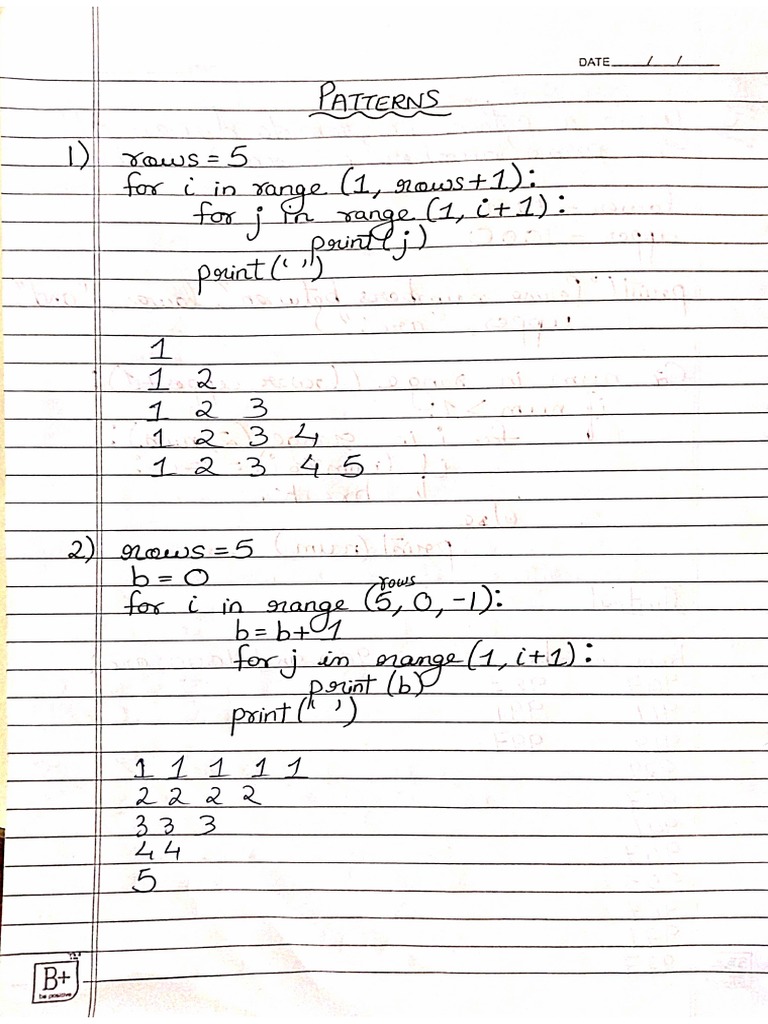 DATE / /
PATTERNS
1) rows = 5
for i in range (1, rows+1):
for j in range (1, i+1):
print(j)
print(' ')
1
1 2
1 2 3
1 2 3 4
1 2 3 4 5
2) rows = 5
b = 0
rows
for i in range (5, 0, -1):
b = b+ 1
for j in range (1, i+1):
print (b)
print(" ')
1 1 1 1 1
2 2 2 2
3 3 3
4 4
5
B+
be positive